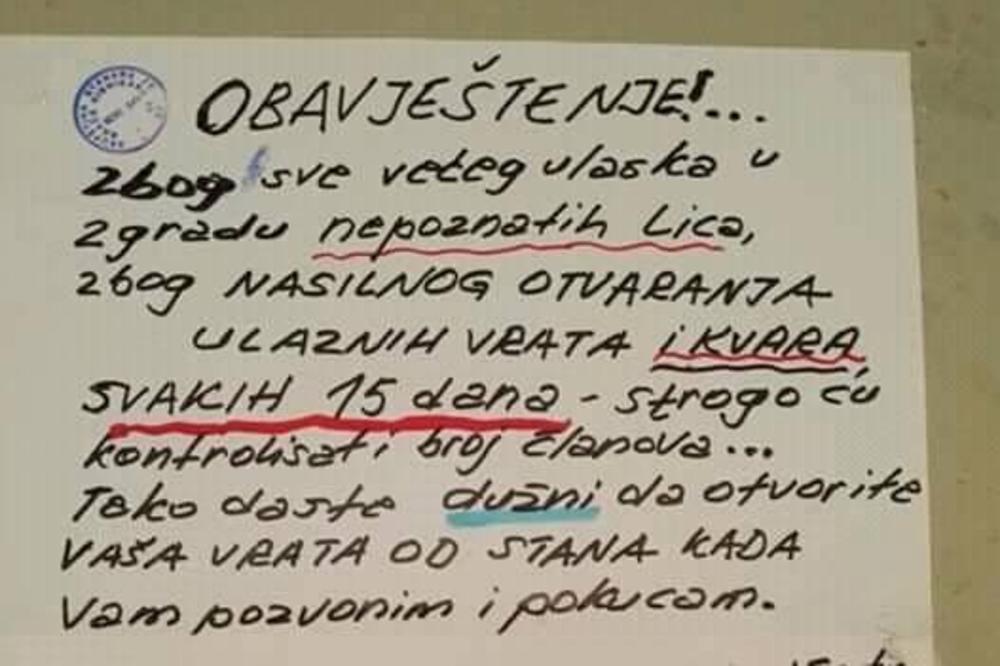 OBAVJEŠTENJE!...
zbog sve većeg ulaska u
zgradu nepoznatih Lica,
zbog NASILNOG OTVARANJA
ULAZNIH VRATA i KVARA
SVAKIH 15 dana - strogo ću
kontrolisati broj članova...
Tako daste dužni da otvorite
VAŠA VRATA OD STANA KADA
Vam pozvonim i pokucam.